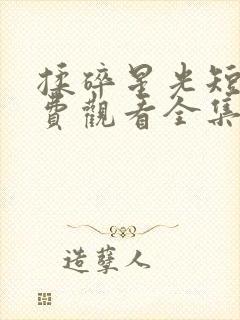 揉碎星光短
費觀看全集
造孽人